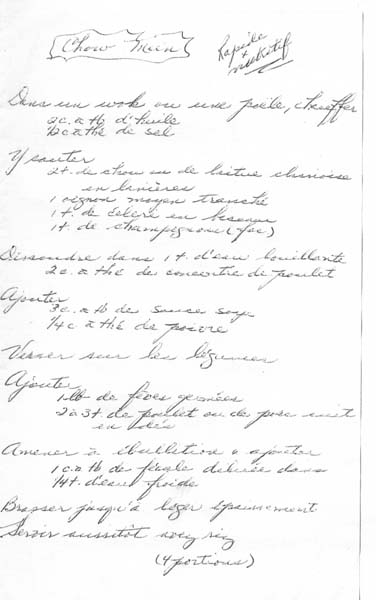 Chow Mein
Rapide
+
nutritif
Dans un wok ou une poêle, chauffer
2 c. à tb d'huile
1/2 c à thé de sel
Y sauter
2 t. de chou ou de laitue chinoise
en lanières
1 oignon moyen tranché
1 t. de céleri en biseau
1 t. de champignons (fac)
Dissoudre dans 1 t. d'eau bouillante
2 c. à thé de concentré de poulet
Ajouter
3 c. à tb de sauce soya
1/4 c à thé de poivre
Verser sur les légumes
Ajouter
1 lb de fèves germées
2 à 3 t. de poulet ou de porc cuit
en dés
Amener à ébullition & ajouter
1 c. à tb de fécule délicée dans
1/4 t. d'eau froide
Brasser jusqu'à léger épaississement
Servir aussitôt avec riz
(4 portions)